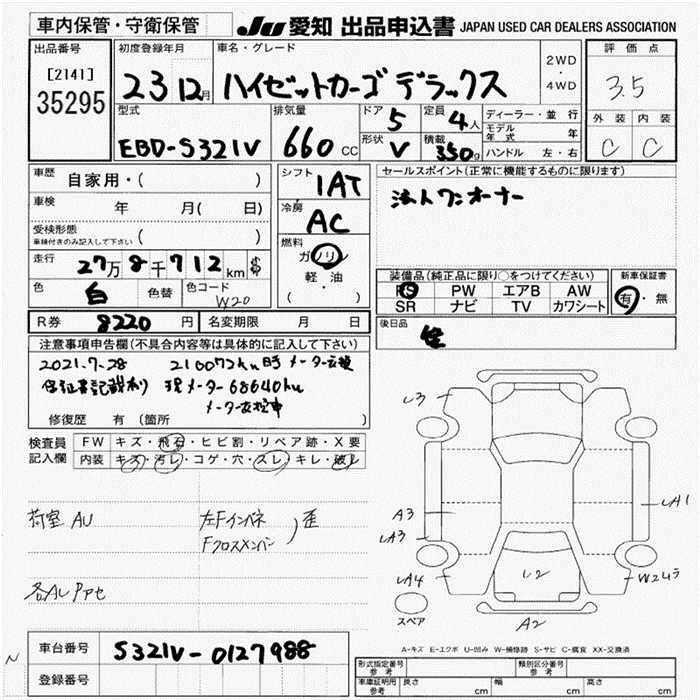 車内保管・守衛保管
JU 愛知 出品申込書 JAPAN USED CAR DEALERS ASSOCIATION
出品番号
[2141]
35295
初度登録年月
23 12月
車名・グレード
ハイゼットカーゴ デラックス
2WD
・
4WD
評価点
3.5
外装 内装
C C
型式
EBD-S321V
排気量
660 cc
ドア
5
定員
4人
形状
V
積載
350
ディーラー・並行
モデル年式 年
ハンドル 左・右
車歴 自家用・( )
車検 年 月( 日)
受検形態
車検付きのみ記入して下さい ( )
走行 27万8千712km
色 白 色替 色コード W20
シフト
IAT
冷房
AC
燃料
ガソリン
軽・油
( )
セールスポイント(正常に機能するものに限ります)
法人ワンオーナー
装備品(純正品に限り○をつけてください)
PS PW エアB AW
SR ナビ TV カワシート
新車保証書
有・無
後日品
R券 8220円 名変期限 月 日
注意事項申告欄(不具合内容等は具体的に記入して下さい)
2021.7.28 210072km時 メーター交換
保証書記載あり 現メーター68640km
メーター交換車
修復歴 有(箇所 )
検査員記入欄
FW キズ・飛石・ヒビ割・リペア跡・X要
内装 キズ・汚レ・コゲ・穴・スレ・キレ・破レ
荷室 AU
左Fインパネ
Fクロスメンバー
歪
各AL Pアセ
L3
A3
LA3
LA4
LA1
L2
A2
スペア
A-キズ E-エクボ U-凹み W-補修跡 S-サビ C-腐食 XX-交換済
車台番号 S321V-0127988
登録番号
N
形式指定番号 参考
類別区分番号 参考
車庫証明用 参考 長さ cm 幅 cm 高さ cm